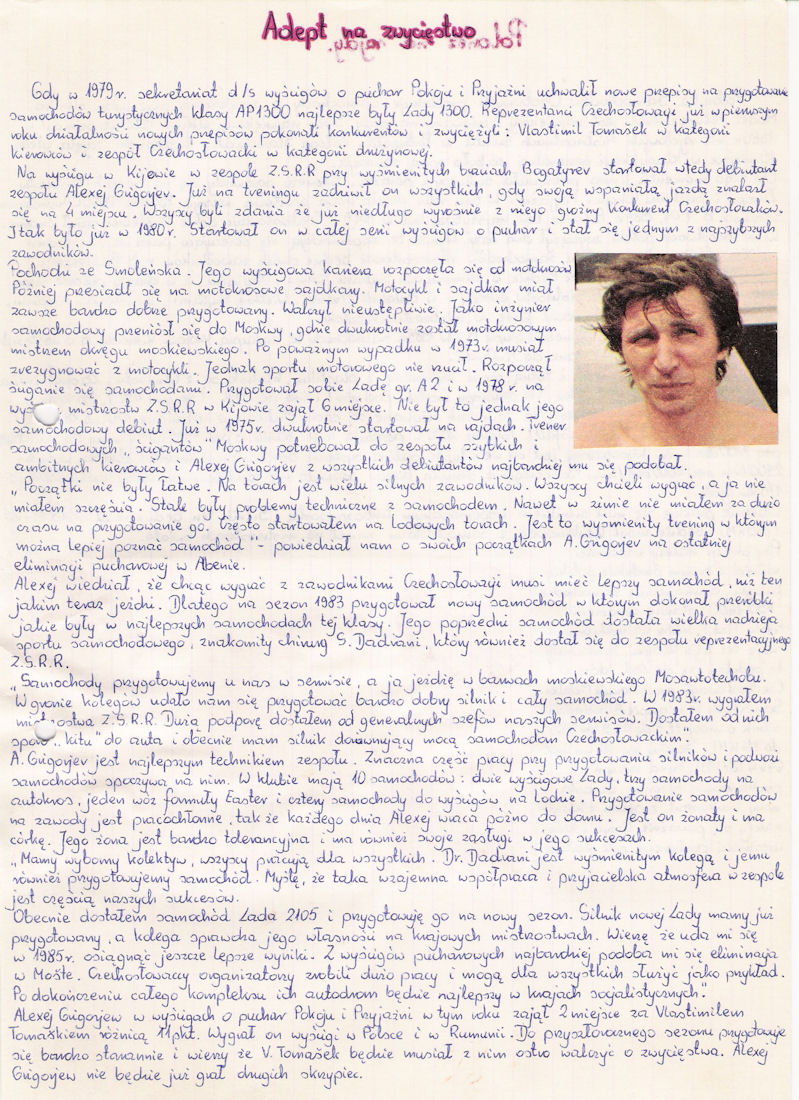 Adept na zwycięstwo
Gdy w 1979r. sekretariat d/s wyścigów o puchar Pokoju i Przyjaźni uchwalił nowe przepisy na przygotowanie
samochodów turystycznych klasy AP1300 najlepsze były Łady 1300. Reprezentanci Czechosłowacji już w pierwszym
roku działalności nowych przepisów pokonali konkurentów i zwyciężyli: Vlastimil Tomašek w kategorii
kierowców i zespół Czechosłowacki w kategorii drużynowej.
Na wyścigu w Kijowie w zespole Z.S.R.R przy wyśmienitych braciach Bogatyrev startował wtedy debiutant
zespołu Alexej Grigorjev. Już na treningu zadziwił on wszystkich, gdy swoją wspaniałą jazdą znalazł
się na 4 miejscu. Wszyscy byli zdania że już niedługo wyrośnie z niego groźny konkurent Czechosłowaków.
I tak było już w 1980r. Startował on w całej serii wyścigów o puchar i stał się jednym z najszybszych
zawodników.
Pochodzi ze Smoleńska. Jego wyścigowa kariera rozpoczęła się od motokrosów
Później przesiadł się na motokrosowe sajdkary. Motocykl i sajdkar miał
zawsze bardzo dobrze przygotowany. Walczył nieustępliwie. Jako inżynier
samochodowy przeniósł się do Moskwy, gdzie dwukrotnie został motokrosowym
mistrzem okręgu moskiewskiego. Po poważnym wypadku w 1973r. musiał
zrezygnować z motocykli. Jednak sportu motorowego nie rzucił. Rozpoczął
ściganie się samochodami. Przygotował sobie Ładę gr. A2 i w 1978r. na
mistrzostw Z.S.R.R w Kijowie zajął 6 miejsce. Nie był to jednak jego
samochodowy debiut. Już w 1975r. dwukrotnie startował na rajdach. Trener
samochodowych „ścigantów" Moskwy potrzebował do zespołu szybkich i
ambitnych kierowców i Alexej Grigorjev z wszystkich debiutantów najbardziej mu się podobał.
„Początki nie były łatwe. Na torach jest wielu silnych zawodników. Wszyscy chcieli wygrać, a ja nie
miałem szczęścia. Stale były problemy techniczne z samochodem. Nawet w zimie nie miałem za dużo
czasu na przygotowanie go. Często startowałem na lodowych torach. Jest to wyśmienity trening w którym
można lepiej poznać samochód" - powiedział nam o swoich początkach A.Grigorjev na ostatniej
eliminacji pucharowej w Albenie.
Alexej wiedział, że chcąc wygrać z zawodnikami Czechosłowacji musi mieć lepszy samochód, niż ten
jakim teraz jeździ. Dlatego na sezon 1983 przygotował nowy samochód w którym dokonał przeróbki
jakie były w najlepszych samochodach tej klasy. Jego poprzedni samochód dostała wielka nadzieja
sportu samochodowego, znakomity chirurg S. Dadvani, który również dostał się do zespołu reprezentacyjnego
Z.S.R.R.
„Samochody przygotowujemy u nas w serwisie, a ja jeżdżę w barwach moskiewskiego Mosawtotechobsł.
W gronie kolegów udało nam się przygotować bardzo dobry silnik i cały samochód. W 1983r. wygrałem
mistrzostwa Z.S.R.R. Dużą podporę dostałem od generalnych szefów naszych serwisów. Dostałem od nich
sporo „kitu" do auta i obecnie mam silnik dorównujący mocą samochodom Czechosłowackim".
A.Grigorjev jest najlepszym technikiem zespołu. Znaczna część pracy przy przygotowaniu silników i podwozi
samochodów spoczywa na nim. W klubie mają 10 samochodów: dwie wyścigowe Łady, trzy samochody na
autokros, jeden wóz formuły Easter i cztery samochody do wyścigów na lodzie. Przygotowanie samochodów
na zawody jest pracochłonne, tak że każdego dnia Alexej wraca późno do domu. Jest on żonaty i ma
córkę. Jego żona jest bardzo tolerancyjna i ma również swoje zasługi w jego sukcesach.
„Mamy wyborny kolektyw, wszyscy pracują dla wszystkich. Dr. Dadvani jest wyśmienitym kolegą i jemu
również przygotowujemy samochód. Myślę, że taka wzajemna współpraca i przyjacielska atmosfera w zespole
jest częścią naszych sukcesów.
Obecnie dostałem samochód Łada 2105 i przygotowuję go na nowy sezon. Silnik nowej Łady mamy już
przygotowany, a kolega sprawdza jego własności na krajowych mistrzostwach. Wierzę że uda mi się
w 1985r. osiągnąć jeszcze lepsze wyniki. Z wyścigów pucharowych najbardziej podoba mi się eliminacja
w Moście. Czechosłowaccy organizatorzy zrobili dużo pracy i mogą dla wszystkich służyć jako przykład.
Po dokończeniu całego kompleksu ich autodrom będzie najlepszy w krajach socjalistycznych".
Alexej Grigorjew w wyścigach o puchar Pokoju i Przyjaźni w tym roku zajął 2 miejsce za Vlastimilem
Tomaškiem różnicą 11pkt. Wygrał on wyścigi w Polsce i w Rumunii. Do przyszłorocznego sezonu przygotowuje
się bardzo starannie i wierzy że V. Tomašek będzie musiał z nim ostro walczyć o zwycięstwa. Alexej
Grigorjew nie będzie już grał drugich skrzypiec.